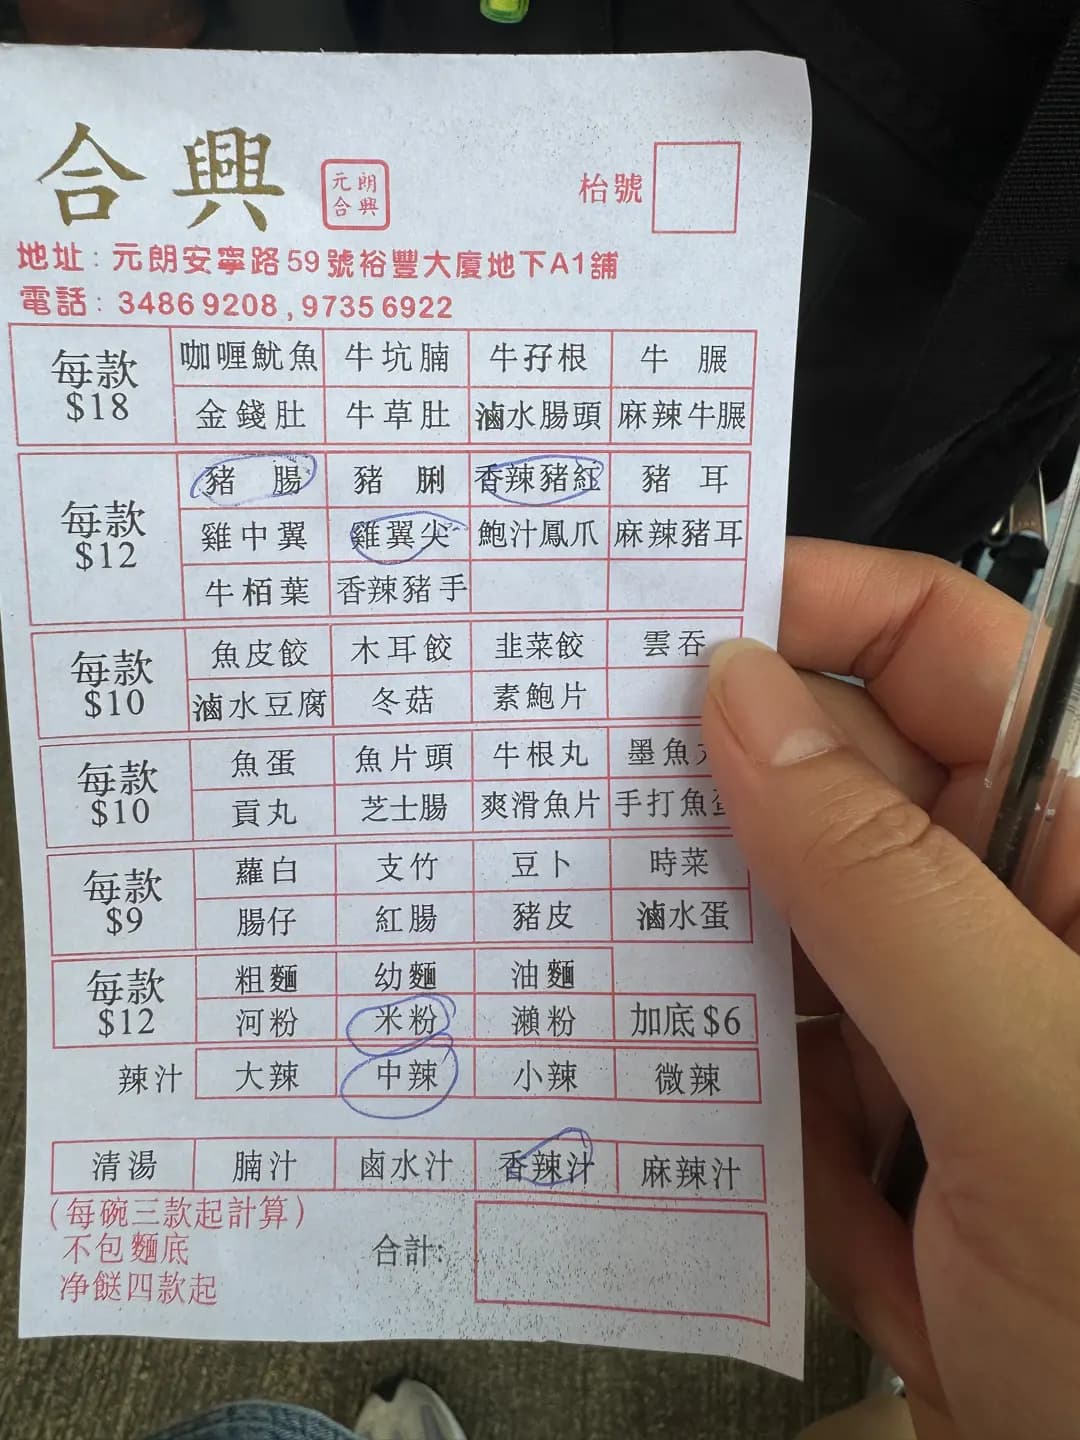 合興
元朗
合興
枱號
地址：元朗安寧路59號裕豐大廈地下A1舖
電話：3486 9208 , 9735 6922
每款 $18
咖喱魷魚 牛坑腩 牛孖根 牛𦟌
金錢肚 牛草肚 滷水腸頭 麻辣牛𦟌
每款 $12
豬腸 豬脷 香辣豬紅 豬耳
雞中翼 雞翼尖 鮑汁鳳爪 麻辣豬耳
牛栢葉 香辣豬手
每款 $10
魚皮餃 木耳餃 韭菜餃 雲吞
滷水豆腐 冬菇 素鮑片
每款 $10
魚蛋 魚片頭 牛根丸 墨魚
貢丸 芝士腸 爽滑魚片 手打魚蛋
每款 $9
蘿白 支竹 豆卜 時菜
腸仔 紅腸 豬皮 滷水蛋
每款 $12
粗麵 幼麵 油麵
河粉 米粉 瀨粉 加底 $6
辣汁 大辣 中辣 小辣 微辣
清湯 腩汁 鹵水汁 香辣汁 麻辣汁
（每碗三款起計算）
不包麵底
净餸四款起
合計：